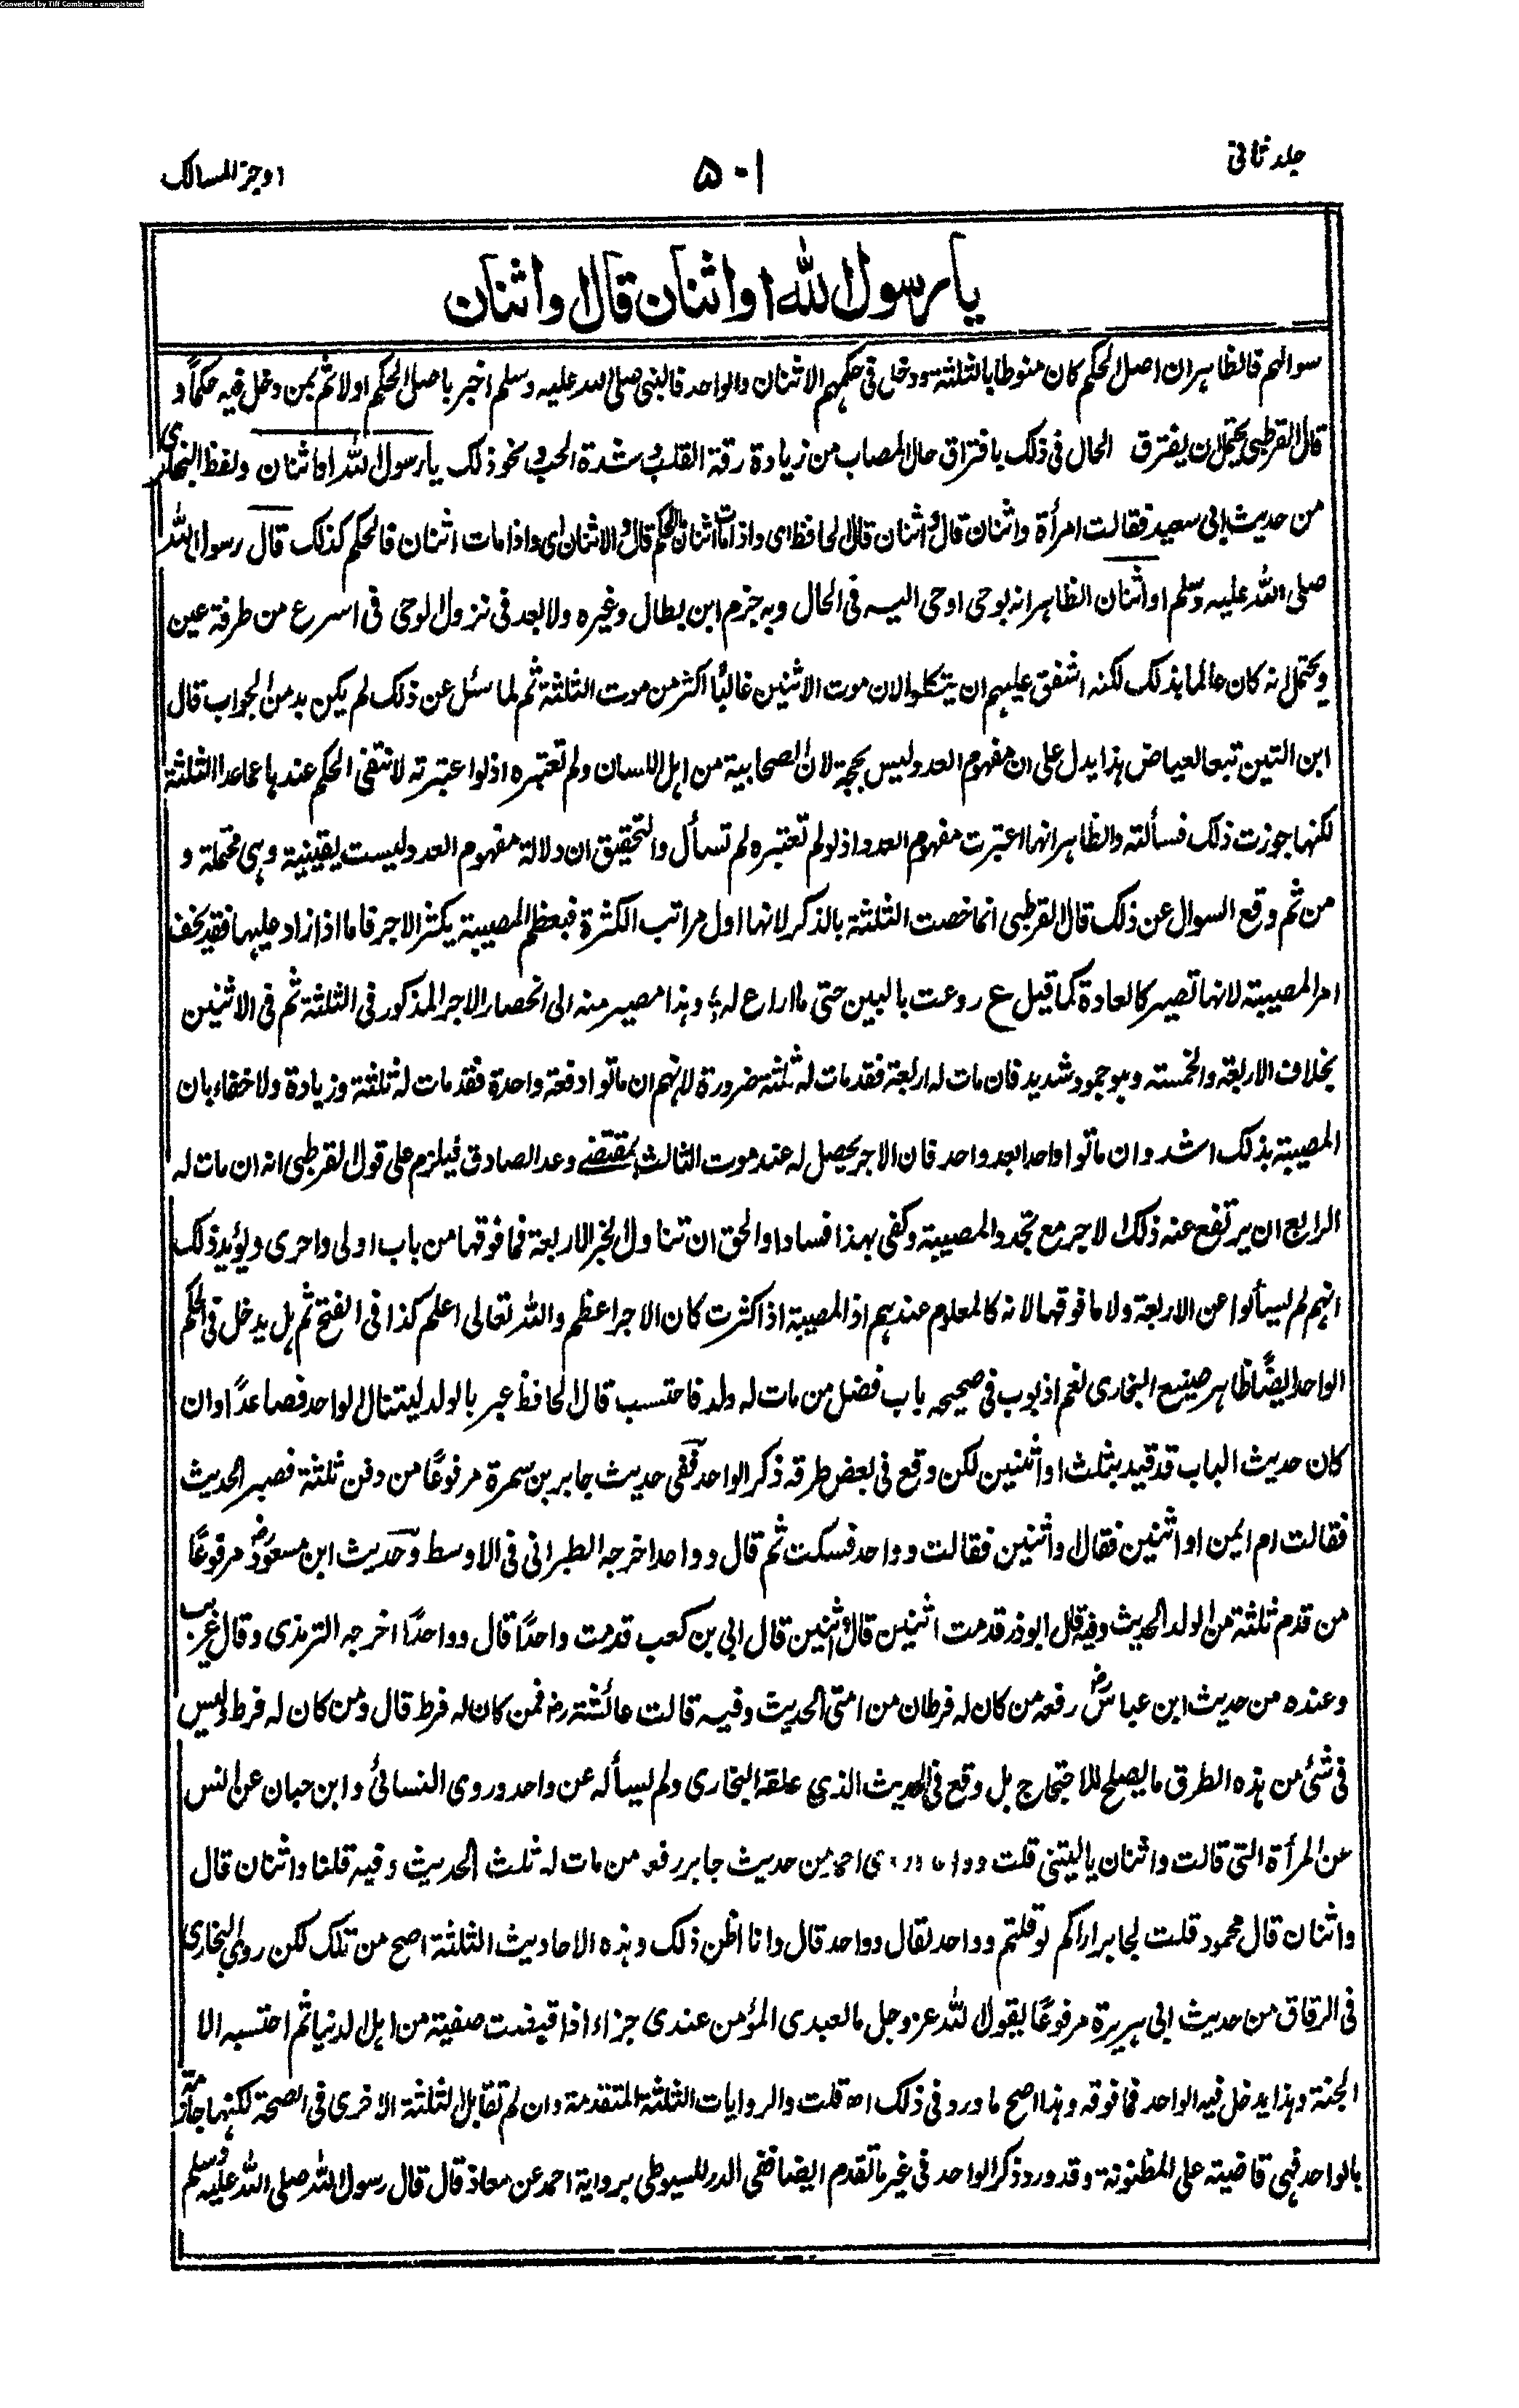 Converted by Tiff Combine - unregistered
جلد ثانی
۵۰۱
اوجز المسالک
یا رسول الله او اثنان قال او اثنان
سوالهم فالظاهر ان اصل الحکم کان منوطا بالثلثة ودخل فی حکمهم الاثنان والواحد فالنبی صلی الله علیه وسلم اخبر باصل الحکم اولا ثم بمن دخل فیه حکماً و
قال القرطبی یحتمل ان یفترق الحال فی ذلک بافتراق حال المصاب من زیادة رقة القلب و شدة الحب و نحو ذلک یا رسول الله او اثنان ولفظ البخاری
من حدیث ابی سعید فقالت امرأة واثنان قال و اثنان قال الحافظ ای واذا مات اثنان ما الحکم قال و الاثنان ای واذا مات اثنان فالحکم کذلک قال رسول الله
صلی الله علیه وسلم او اثنان الظاهر انه بوحی اوحی الیه فی الحال وبه جزم ابن بطال وغیره ولا بعد فی نزول الوحی فی اسرع من طرفة عین
ویحتمل انه کان عالما بذلک لکنه اشفق علیهم ان یتکلوا لان موت الاثنین غالباً اکثر من موت الثلثة ثم لما سئل عن ذلک لم یکن بد من الجواب قال
ابن التین تبعا لعیاض هذا یدل علی ان مفهوم العدد لیس بحجة لان الصحابیة من اهل اللسان ولم تعتبره اذ لو اعتبرته لانتفی الحکم عندها عما عدا الثلثة
لکنها جوزت ذلک فسألته والظاهر انها اعتبرت مفهوم العدد اذ لو لم تعتبره لم تسأل والتحقیق ان دلالة مفهوم العدد لیست یقینیة وهی محتملة و
من ثم وقع السوال عن ذلک قال القرطبی انما خصت الثلثة بالذکر لانها اول مراتب الکثرة فبعظم المصیبة یکثر الاجر فاما اذا زاد علیها فقد یخف
امر المصیبة لانها تصیر کالعادة کما قیل ع روعت بالبین حتی ما اراع له ؛ وهذا مصیر منه الی انحصار الاجر المذکور فی الثلثة ثم فی الاثنین
بخلاف الاربعة والخمسة وهو جمود شدید فان مات له اربعة فقد مات له ثلثة ضرورة لانهم ان ماتوا دفعة واحدة فقد مات له ثلثة وزیادة ولا خفاء بان
المصیبة بذلک اشد وان ماتوا واحدا بعد واحد فان الاجر یحصل له عند موت الثالث بمقتضے وعد الصادق فیلزم علی قول القرطبی انه ان مات له
الرابع ان یرتفع عنه ذلک الاجر مع تجدد المصیبة وکفی بهذا فسادا والحق ان تناول الخبر الاربعة فما فوقها من باب اولی واحری ویؤید ذلک
انهم لم یسألوا عن الاربعة ولا ما فوقها لانه کالمعلوم عندهم اذ المصیبة اذا کثرت کان الاجر اعظم والله تعالی اعلم کذا فی الفتح ثم هل یدخل فی الحکم
الواحد ایضاً ظاهر صنیع البخاری نعم اذ بوب فی صحیحه باب فضل من مات له ولد فاحتسب قال الحافظ عبر بالولد لیتناول الواحد فصاعداً وان
کان حدیث الباب قد قید بثلث او اثنین لکن وقع فی بعض طرقه ذکر الواحد ففی حدیث جابر بن سمرة مرفوعاً من دفن ثلثة فصبر الحدیث
فقالت ام ایمن او اثنین فقال و اثنین فقالت و واحد فسکت ثم قال و واحدا اخرجه الطبرانی فی الاوسط وحدیث ابن مسعود رض مرفوعاً
من قدم ثلثة من الولد الحدیث وفیه قال ابوذر قدمت اثنین قال و اثنین قال ابی بن کعب قدمت واحداً قال و واحداً اخرجه الترمذی وقال غریب
وعنده من حدیث ابن عباس رض رفعه من کان له فرطان من امتی الحدیث وفیه قالت عائشة رض فمن کان له فرط قال ومن کان له فرط ولیس
فی شئ من هذه الطرق ما یصلح للاحتجاج بل وقع فی الحدیث الذی علقه البخاری ولم یسأله عن واحد وروی النسائی وابن حبان عن انس
عن المرأة التی قالت واثنان یا لیتنی قلت و واحد من حدیث جابر رفعه من مات له ثلث الحدیث وفیه قلنا واثنان قال
واثنان قال محمود قلت لجابر اراکم لو قلتم و واحد لقال و واحد قال وانا اظن ذلک وهذه الاحادیث الثلثة اصح من تلک لکن روی البخاری
فی الرقاق من حدیث ابی هریرة مرفوعاً یقول الله عز وجل ما لعبدی المؤمن عندی جزاء اذا قبضت صفیه من اهل الدنیا ثم احتسبه الا
الجنة وهذا یدخل فیه الواحد فما فوقه وهذا اصح ما ورد فی ذلک اه قلت والروایات الثلثة المتقدمة وان لم تقابل الثلثة الاخری فی الصحة لکنها جازمة
بالواحد فهی قاضیة علی المظنونة وقد ورد ذکر الواحد فی غیر ما تقدم ایضا ففی الدر للسیوطی بروایة احمد عن معاذ قال قال رسول الله صلی الله علیه وسلم